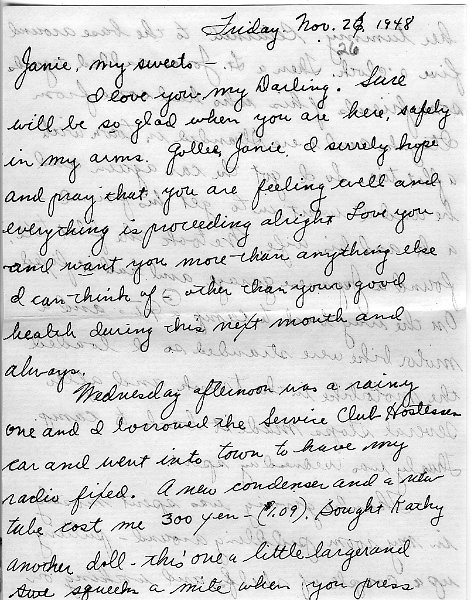 Friday Nov. 26, 1948
26
Janie, my sweets -
I love you my Darling. Sure
will be so glad when you are here, safely
in my arms. Gollee, Janie, I surely hope
and pray that you are feeling well and
everything is proceeding alright. Love you
and want you more than anything else
I can think of - other than your good
health during this next month and
always.
Wednesday afternoon was a rainy
one and I borrowed the Service Club Hostesses
car and went into town to have my
radio fixed. A new condenser and a new
tube cost me 300 yen - ($1.09). Bought Kathy
another doll - this one a little larger and
squeeks a mite when you press